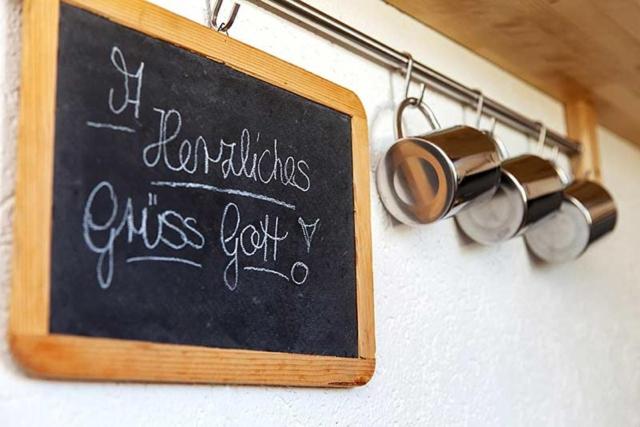 A
Herzliches
Grüss Gott!